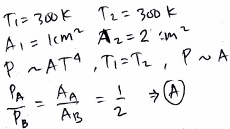 T₁ = 300 K T₂ = 300 K
A₁ = 1 cm² A₂ = 2 cm²
P ~ AT⁴ , T₁ = T₂ , P ~ A
P_A/P_B = A_A/A_B = 1/2 ⇒ Ⓐ